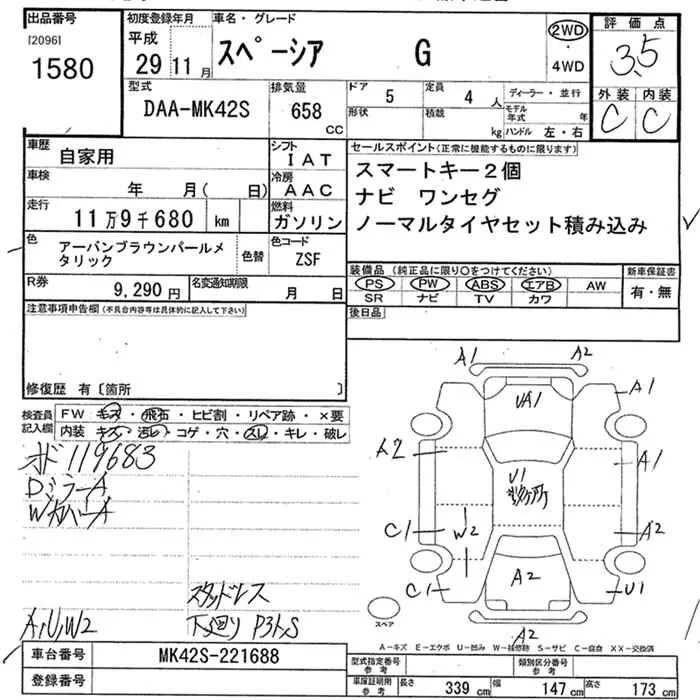 出品番号
[2096]
1580
初度登録年月
平成
29 11 月
車名・グレード
スペーシア G
2WD
・
4WD
評価点
3.5
外装 内装
C C
型式
DAA-MK42S
排気量
658
CC
ドア 5
定員 4 人
形状
積載 kg
ディーラー・並行
モデル年式 年
ハンドル 左・右
車歴
自家用
シフト
IAT
車検
年 月( 日)
冷房
AAC
走行
11万9千680 km
燃料
ガソリン
色
アーバンブラウンパールメタリック
色替
色コード
ZSF
R券
9,290 円
名変通知期限
月 日
セールスポイント(正常に機能するものに限ります)
スマートキー2個
ナビ ワンセグ
ノーマルタイヤセット積み込み
装備品 (純正品に限り○をつけてください)
PS PW ABS エアB AW
SR ナビ TV カワ
新車保証書
有・無
後日品
注意事項申告欄(不具合内容等は具体的に記入して下さい)
修復歴 有〔箇所 〕
検査員
記入欄
FW キズ・飛石・ヒビ割・リペア跡・×要
内装 キズ・汚レ・コゲ・穴・スレ・キレ・破レ
119683
WカバーA
A,U,W2
スタッドレス
下廻り P3トS
A1 A2
A1
UA1
A2
A1
U1
C1
W2
A2
C1
A2
U1
スペア
A2
A-キズ E-エクボ U-凹み W-補修跡 S-サビ C-腐食 XX-交換済
車台番号
MK42S-221688
登録番号
型式指定番号
参考
類別区分番号
参考
車庫証明用
参考
長さ 339 cm
幅 147 cm
高さ 173 cm